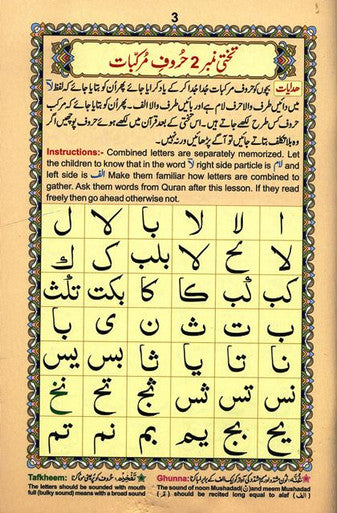 3
تختی نمبر 2 حُروفِ مُرکّبات
هدایات بچّوں کو حروفِ مرکبات جُدا جُدا کر کے یاد کرایا جائے پھر اُن کو بتایا جائے کہ لفظ لا
میں دائیں طرف والا حرف لام ہے اور بائیں طرف والا الف۔ پھر اُن کو بتایا جائے کہ مرکب
حروف کس طرح لکھے جاتے ہیں۔ اس تختی کے بعد قرآن میں لکھے ہوئے حروف پوچھیں اگر
وہ بلا تکلف بتاتے جائیں تو آگے پڑھائیں ورنہ نہیں۔
Instructions:- Combined letters are separately memorized. Let
the children to know that in the word لا right side particle is لام and
left side is الف Make them familiar how letters are combined to
gather. Ask them words from Quran after this lesson. If they read
freely then go ahead otherwise not.
ا لا لا با لا ل
لا لا بلب ک ك
کب کب کا کا بکت تلث
ب ت ث ن ی با
نا تا یا ثا بس یس
نس تس ثس ثج تح نخ
یح بج یم بم نم تم
Ghunna:
The sound of noon Mushadad(ن)and meem Mushadad
(م) should be recited long equal to alaf (الف)
Tafkheem:
The letters should be sounded with mouth
full (bulky sound) means with a broad sound